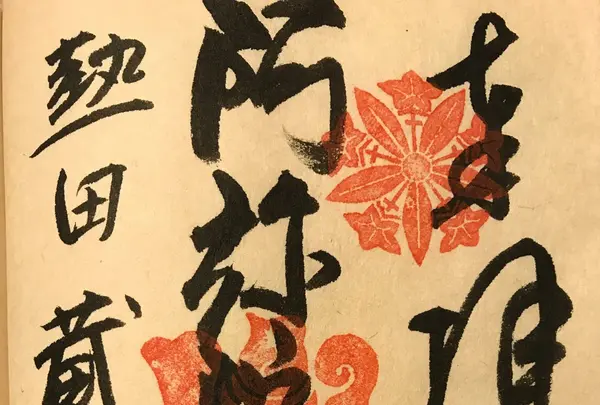 奉拝
阿弥
熱田蔵